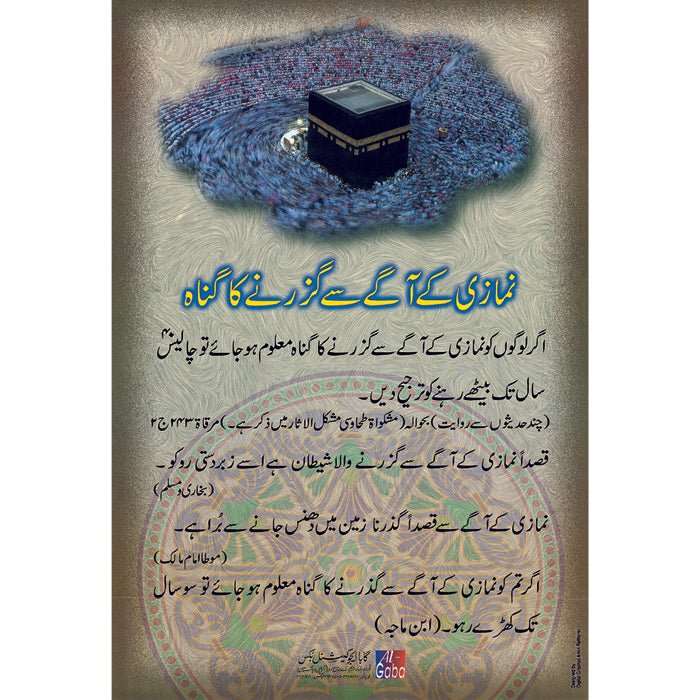 نمازی کے آگے سے گزرنے کا گناہ
اگر لوگوں کو نمازی کے آگے سے گزرنے کا گناہ معلوم ہو جائے تو چالیس ۴۰
سال تک بیٹھے رہنے کو ترجیح دیں۔
(چند حدیثوں سے روایت) بحوالہ (مشکواۃ طحاوسی مشکل الاثار میں ذکر ہے۔) مرقاۃ ۲۴۳ ج ۲
قصداً نمازی کے آگے سے گزرنے والا شیطان ہے اسے زبردستی روکو۔
(بخاری و مسلم)
نمازی کے آگے سے قصداً گذرنا زمین میں دھنس جانے سے بُرا ہے۔
(موطا امام مالک)
اگر تم کو نمازی کے آگے سے گذرنے کا گناہ معلوم ہو جائے تو سو سال
تک کھڑے رہو۔ (ابن ماجہ)
گابا ایجوکیشنل بکس
Al-
Gaba
Designed By